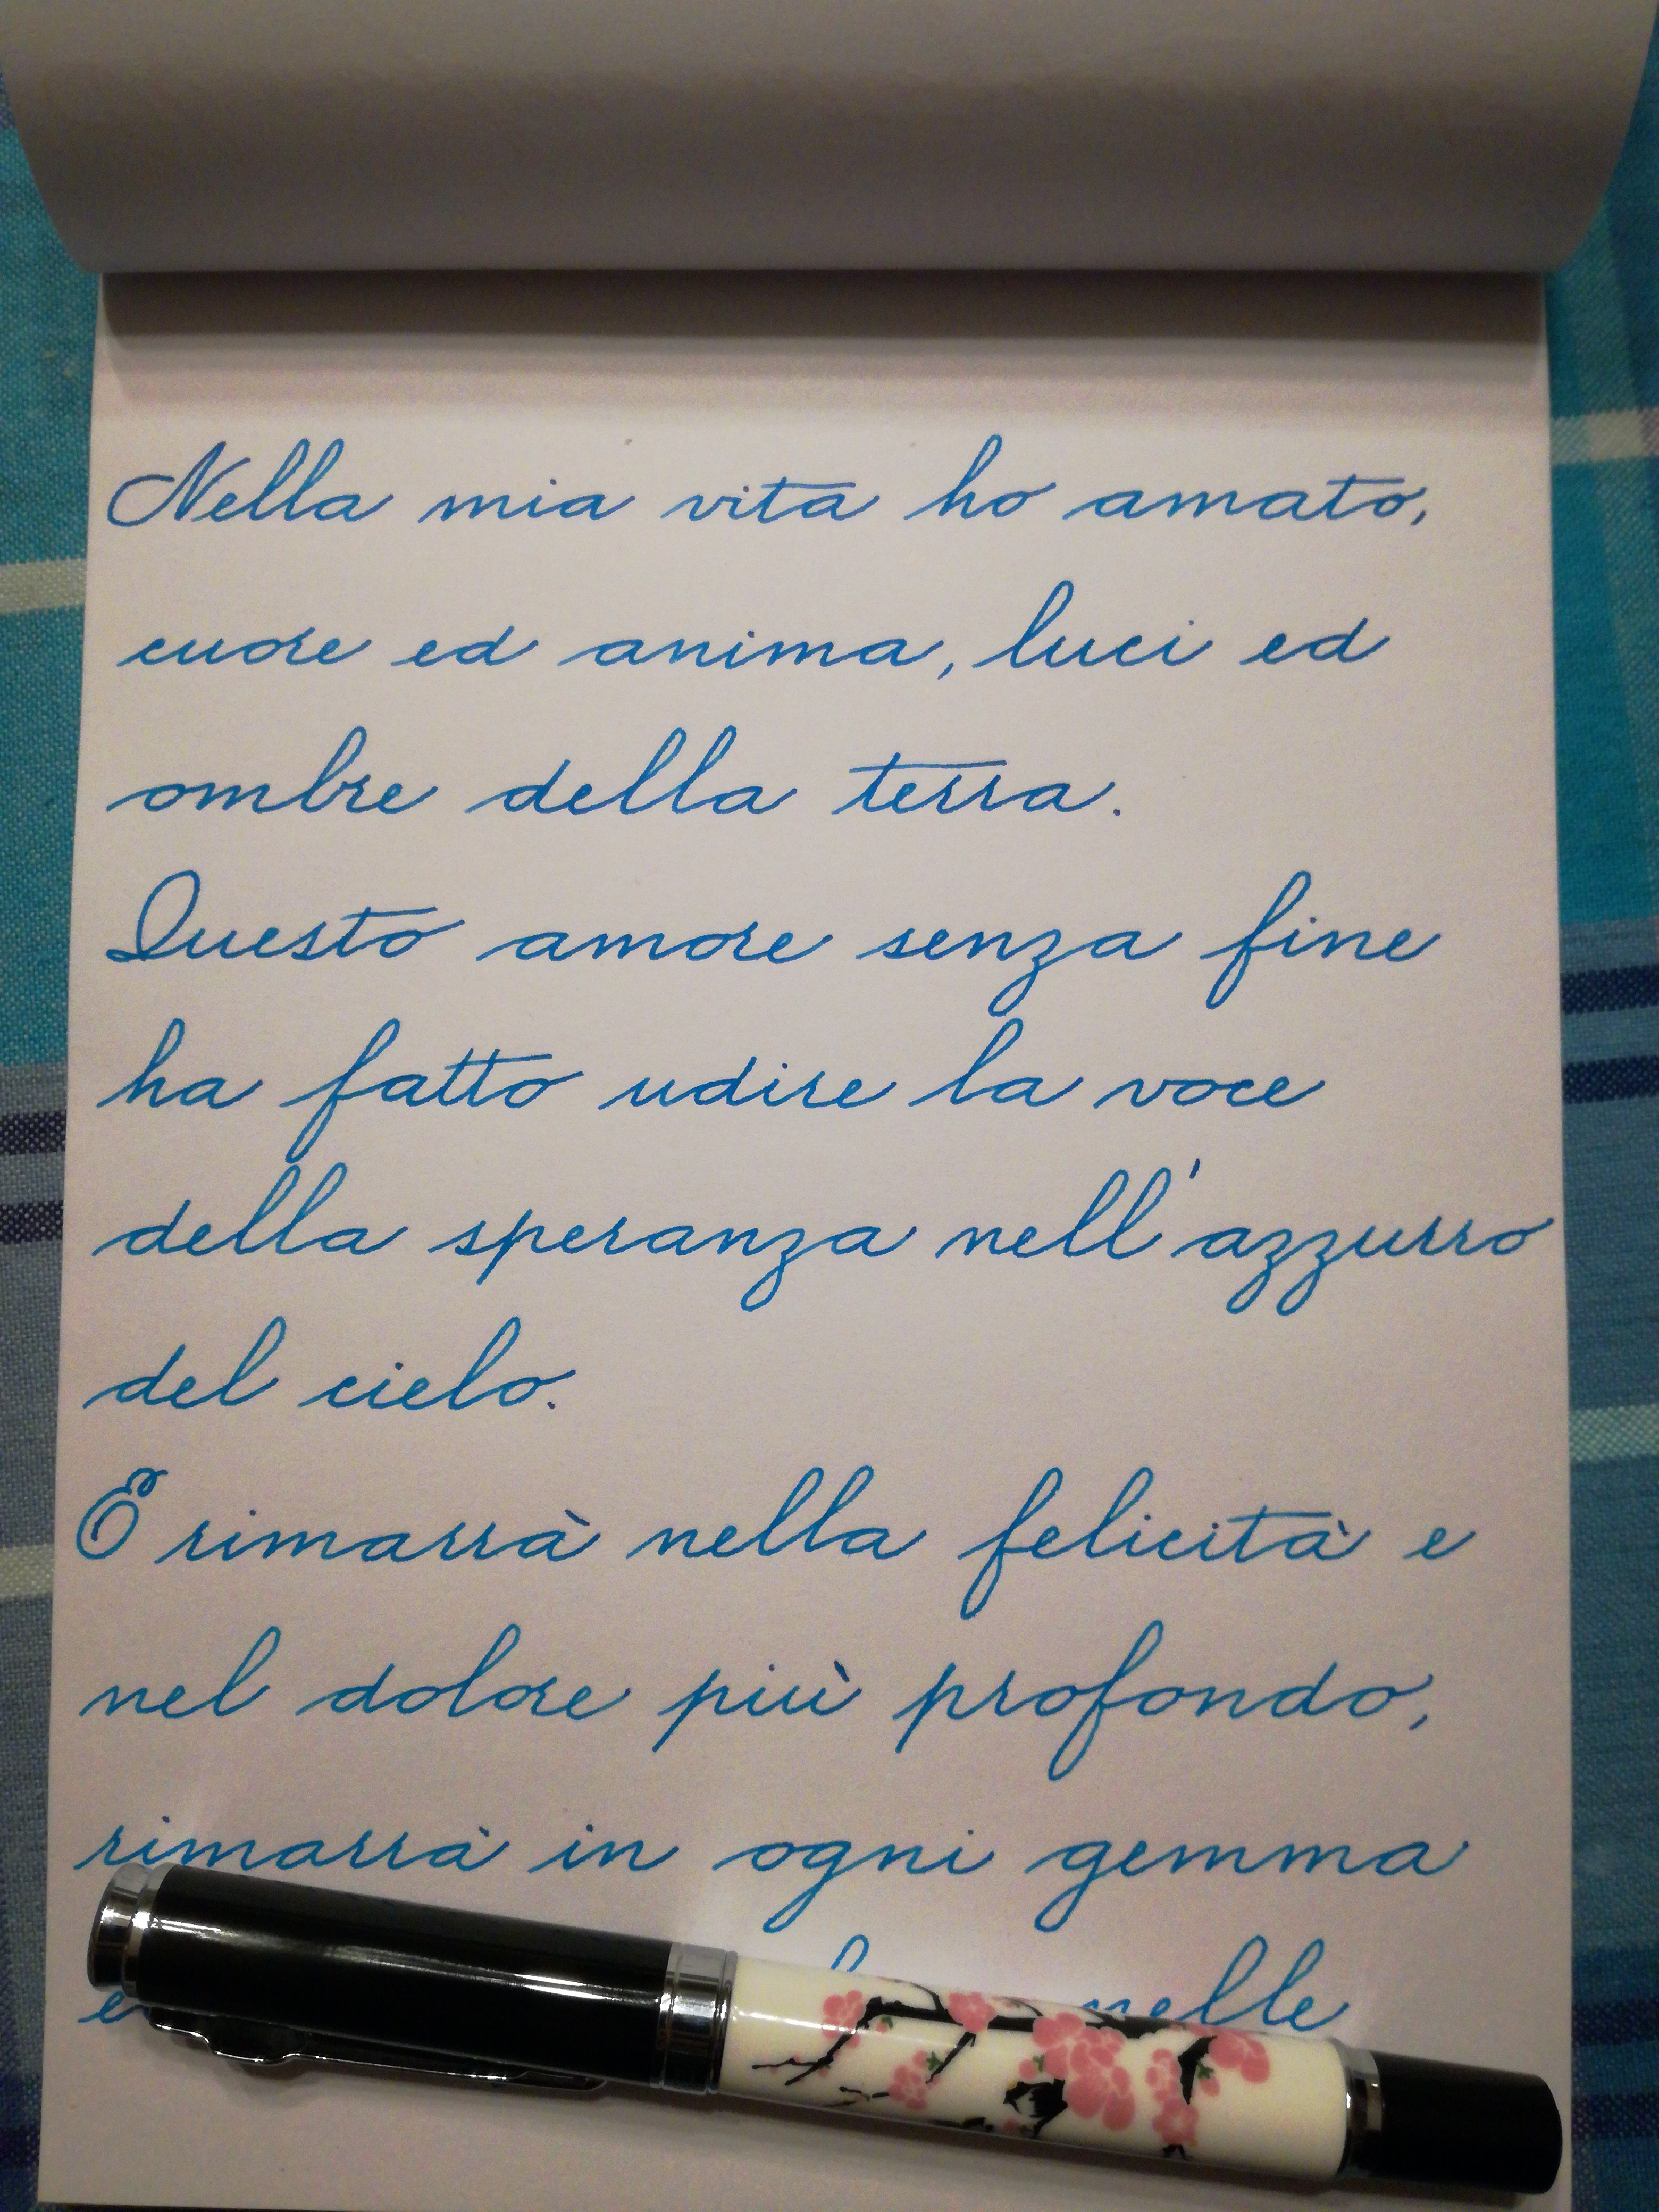 Nella mia vita ho amato,
cuore ed anima, luci ed
ombre della terra.
Questo amore senza fine
ha fatto udire la voce
della speranza nell'azzurro
del cielo.
E rimarrà nella felicità e
nel dolore più profondo,
rimarrà in ogni gemma
nelle